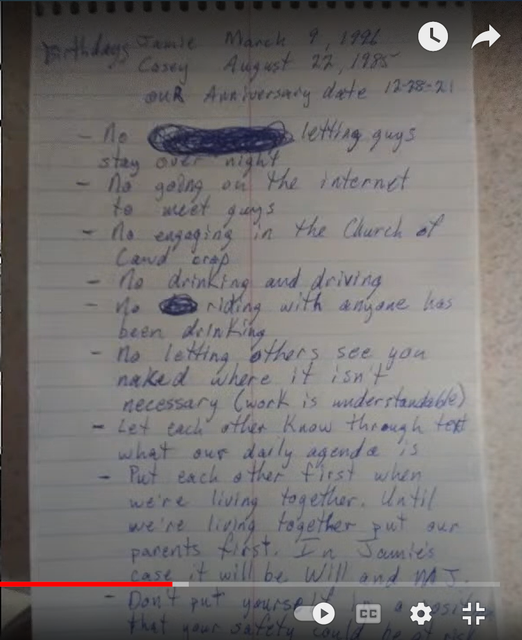 Birthdays Jamie March 9,
Casey August 22, 1985
OUR Anniversary date 12-28-21
- No letting guys
stay over night
- No going on the internet
to meet guys
- No engaging in the Church of
- No drinking and driving
- No riding with anyone has
been drinking
- No letting others see you
naked where it isn't
necessary (work is understandable)
- Let each other know through text
what our daily agenda is
- Put each other first when
we're living together. Until
we're living together put our
parents first. In Jamie's
case it will be Will and MJ.
- Don't put yourself in a
that your safety could be
CC